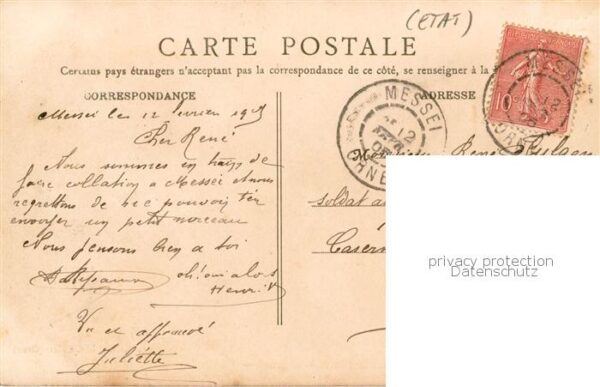 (ETAT)
CARTE POSTALE
Certains pays étrangers n'acceptant pas la correspondance de ce côté, se renseigner à la
CORRESPONDANCE
ADRESSE
MESSEI
12
ORNE
MESSEI
12
10c
Messei le 12
Cher René
Nous sommes en train de
faire collation a Messei & nous
regrettons de pouvoir t'en
envoyer un petit morceau
Nous pensons bien a toi
oh! oui alors
Henri
Vu et approuvé
Juliette
Monsieur René
soldat au
Caserne
privacy protection
Datenschutz